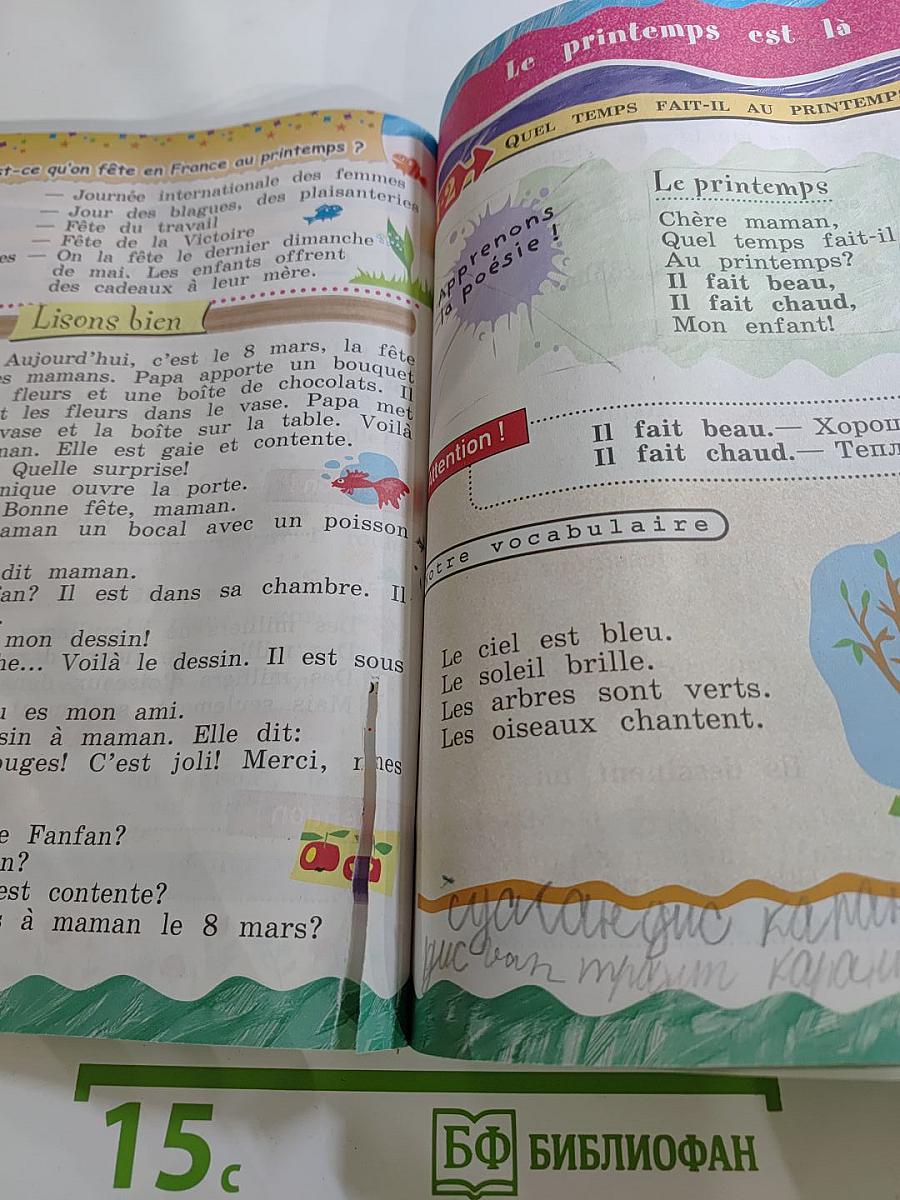 st-ce qu'on fête en France au printemps ?
— Journée internationale des femmes
— Jour des blagues, des plaisanteries
— Fête du travail
— Fête de la Victoire
es — On la fête le dernier dimanche
de mai. Les enfants offrent
des cadeaux à leur mère.
Lisons bien
Aujourd'hui, c'est le 8 mars, la fête
s mamans. Papa apporte un bouquet
fleurs et une boîte de chocolats. Il
t les fleurs dans le vase. Papa met
vase et la boîte sur la table. Voilà
man. Elle est gaie et contente.
Quelle surprise!
nique ouvre la porte.
Bonne fête, maman.
aman un bocal avec un poisson
dit maman.
fan? Il est dans sa chambre. Il
mon dessin!
he... Voilà le dessin. Il est sous
u es mon ami.
sin à maman. Elle dit:
ouges! C'est joli! Merci, mes
e Fanfan?
n?
est contente?
s à maman le 8 mars?
Le printemps est là
QUEL TEMPS FAIT-IL AU PRINTEMPS
2
Apprenons
la poésie !
Le printemps
Chère maman,
Quel temps fait-il
Au printemps?
Il fait beau,
Il fait chaud,
Mon enfant!
ttention !
Il fait beau.— Хорош
Il fait chaud.— Тепл
otre vocabulaire
Le ciel est bleu.
Le soleil brille.
Les arbres sont verts.
Les oiseaux chantent.
15 с
БФ БИБЛИОФАН